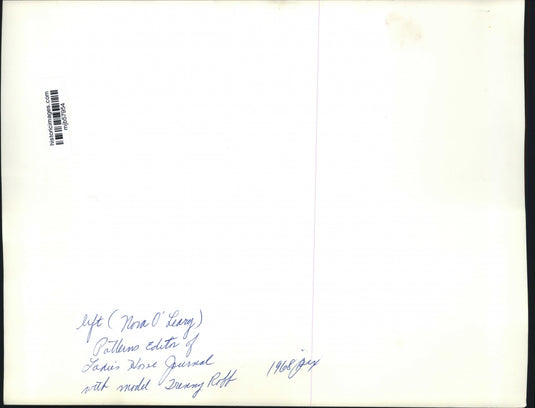 historicimages.com
mjb57954
left (Nora O'Leary)
Patterns Editor of
Ladies Home Journal
with model Trenny Roff
1968/